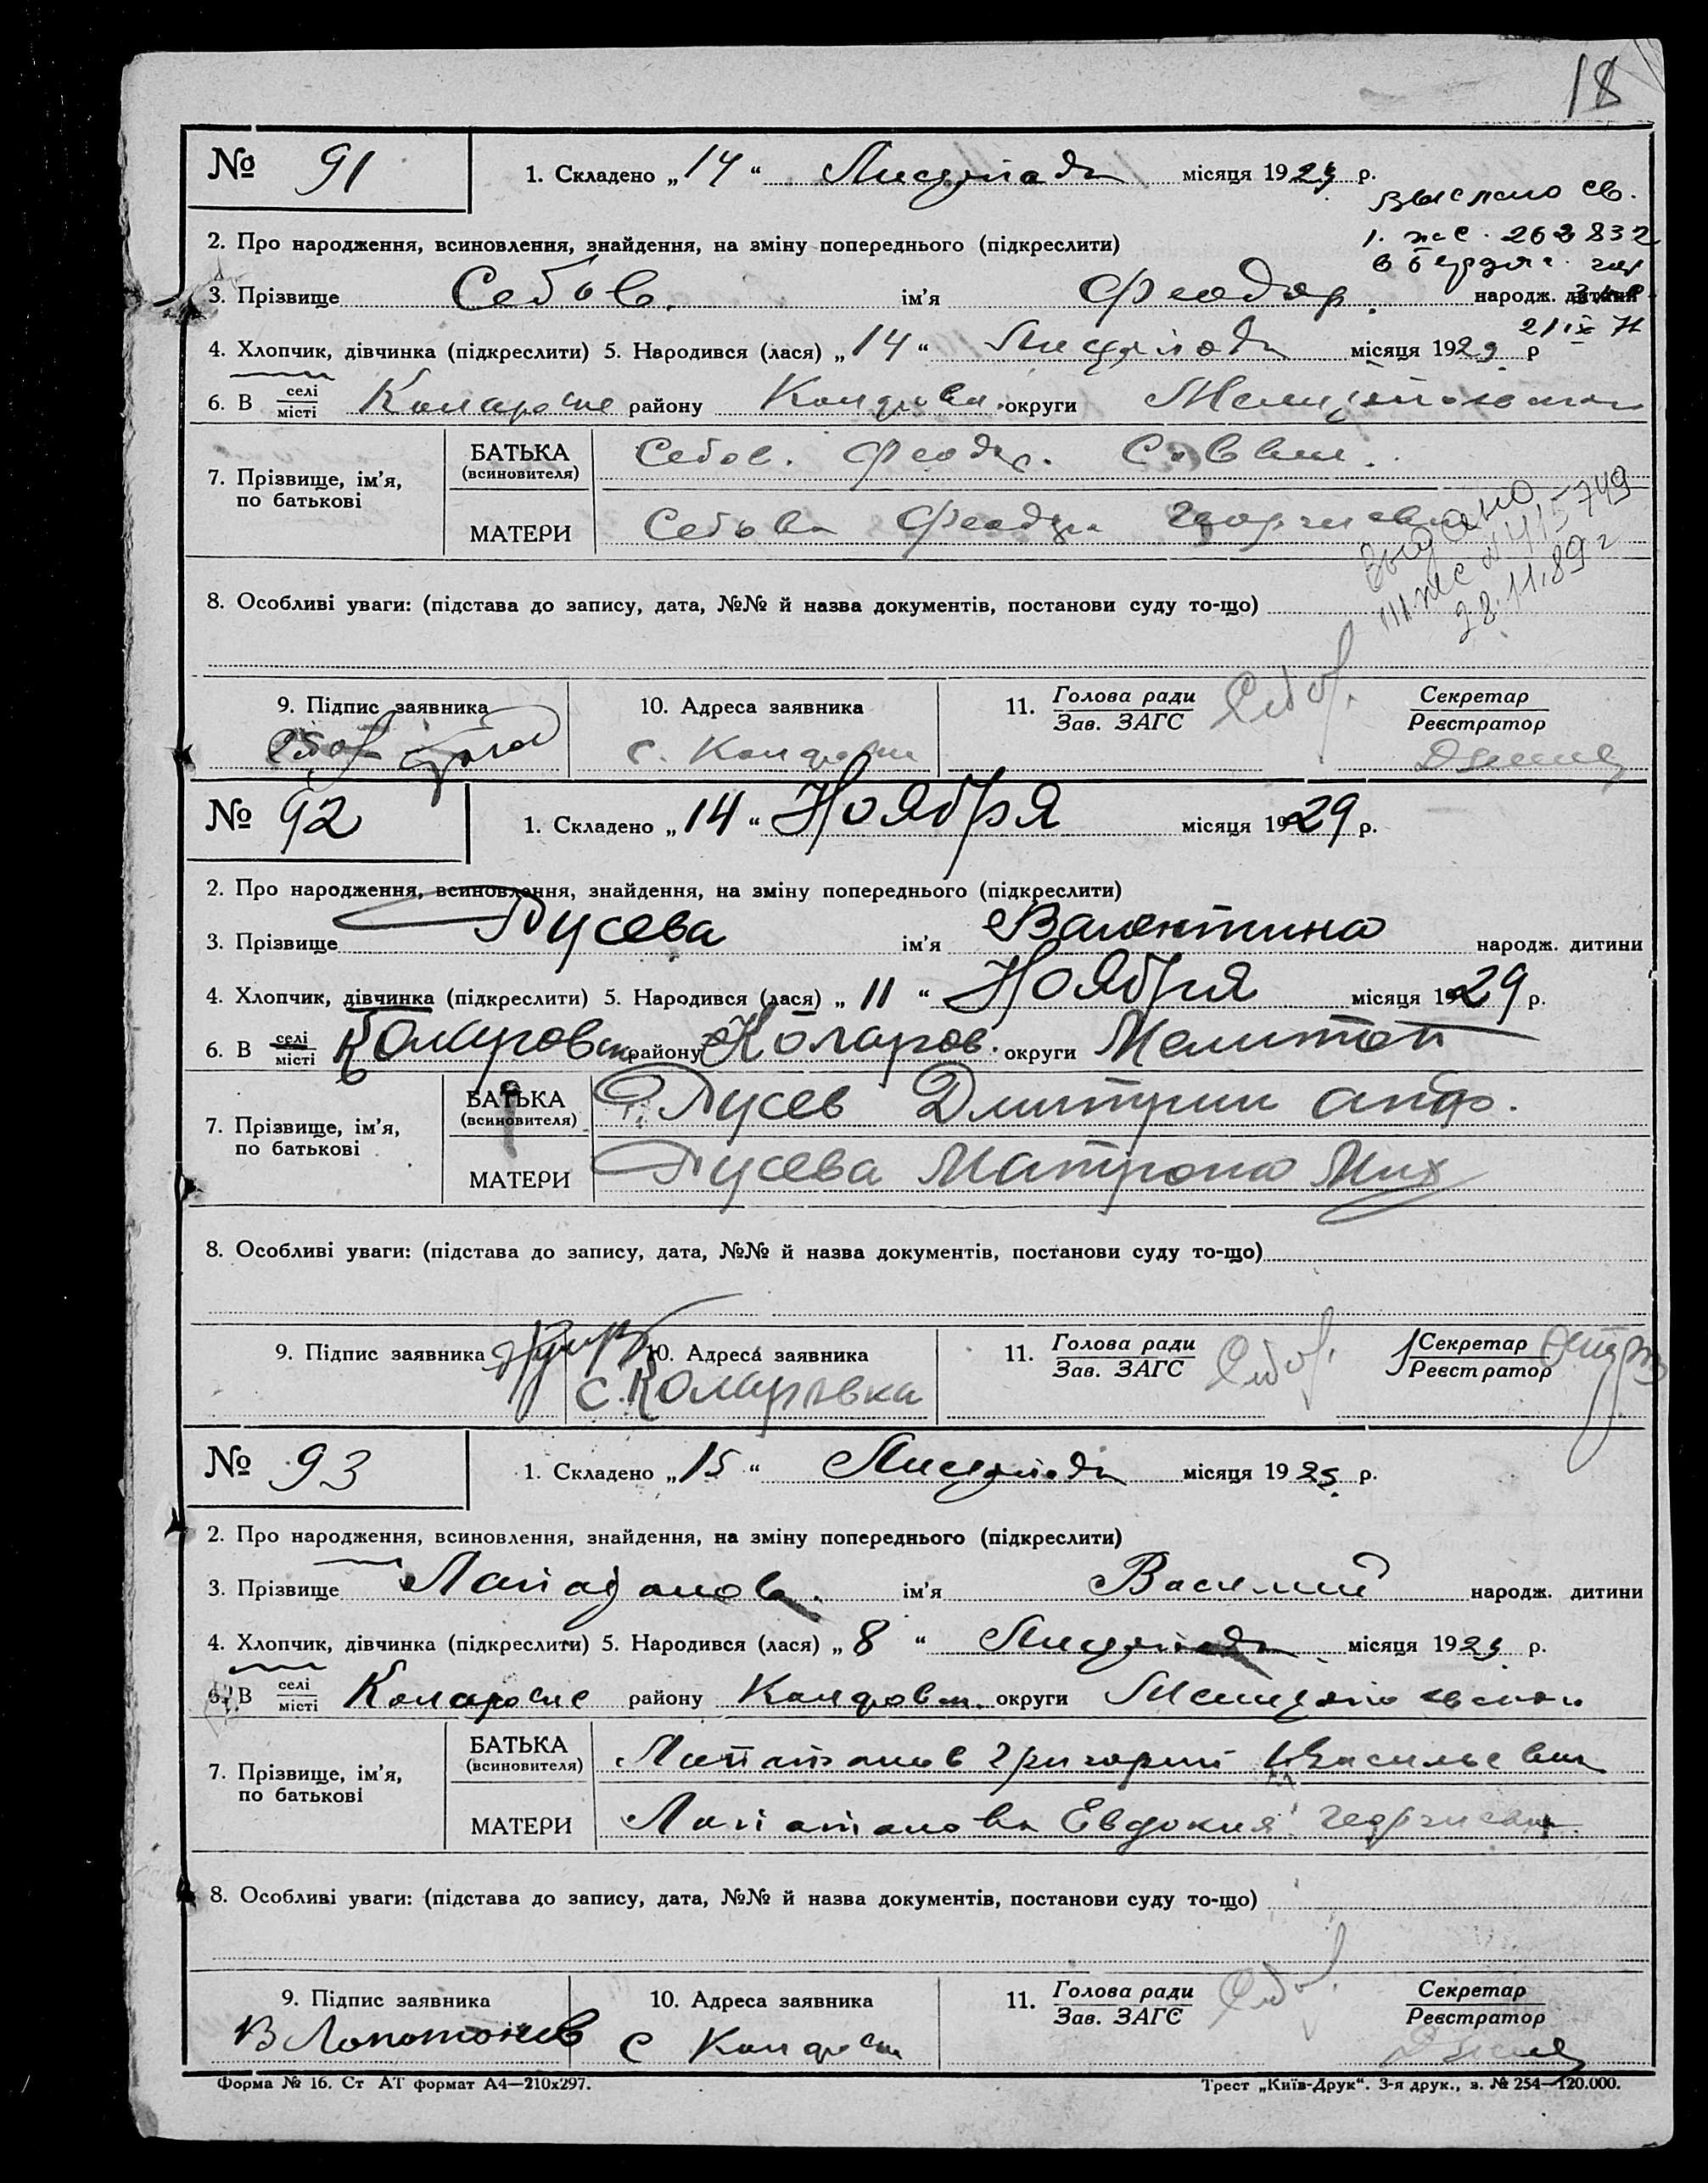 18
№ 91 1. Складено „14“ Листопада місяця 1929 р.
Выслано св.
2. Про народження, всиновлення, знайдення, на зміну попереднього (підкреслити)
1. жс. 262832
в Бердян.
3. Прізвище Себов. ім'я Феодор. народж. дитини
21 IX 71
4. Хлопчик, дівчинка (підкреслити) 5. Народився (лася) „14“ Листопада місяця 1929 р
6. В селі місті району округи
7. Прізвище, ім'я, по батькові
БАТЬКА (всиновителя) Себов. Феод. Саввич.
МАТЕРИ Себова Георгиевна
Выдано
III жс № 415749
28.11.89 г
8. Особливі уваги: (підстава до запису, дата, №№ й назва документів, постанови суду то-що)
9. Підпис заявника 10. Адреса заявника 11. Голова ради Зав. ЗАГС Секретар Реєстратор
с.
№ 92 1. Складено „14“ Ноября місяця 1929 р.
2. Про народження, всиновлення, знайдення, на зміну попереднього (підкреслити)
3. Прізвище Гусева ім'я Валентина народж. дитини
4. Хлопчик, дівчинка (підкреслити) 5. Народився (лася) „11“ Ноября місяця 1929 р.
6. В селі місті району Коларов. округи Мелитоп
7. Прізвище, ім'я, по батькові
БАТЬКА (всиновителя) Гусев Дмитрий
МАТЕРИ Гусева Матрона Мих
8. Особливі уваги: (підстава до запису, дата, №№ й назва документів, постанови суду то-що)
9. Підпис заявника 10. Адреса заявника 11. Голова ради Зав. ЗАГС Секретар Реєстратор
с. Коларовка
№ 93 1. Складено „15“ Листопада місяця 1929 р.
2. Про народження, всиновлення, знайдення, на зміну попереднього (підкреслити)
3. Прізвище Лапатанов. ім'я Василий народж. дитини
4. Хлопчик, дівчинка (підкреслити) 5. Народився (лася) „8“ Листопада місяця 1929 р.
6. В селі місті району округи
7. Прізвище, ім'я, по батькові
БАТЬКА (всиновителя) Лапатанов Григорий Васильевич
МАТЕРИ Лапатанова Евдокия Георгиевна
8. Особливі уваги: (підстава до запису, дата, №№ й назва документів, постанови суду то-що)
9. Підпис заявника 10. Адреса заявника 11. Голова ради Зав. ЗАГС Секретар Реєстратор
В Лопотонов с
Форма № 16. Ст АТ формат А4—210х297. Трест „Київ-Друк“. 3-я друк., з. № 254—120.000.